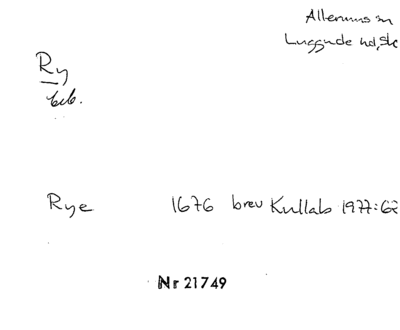 Allerums sn
Luggude hd, Sk
Ry
beb.
Rye 1676 brev Kullab 1977:62
Nr 21749